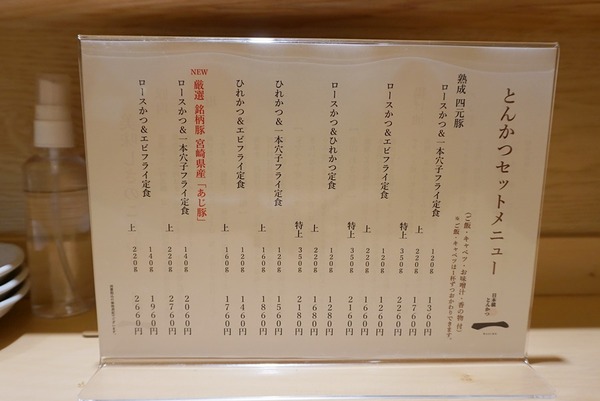 とんかつセットメニュー
(ご飯・キャベツ・お味噌汁・香の物付)
※ご飯・キャベツは1杯ずつおかわりできます。
日本橋
とんかつ
一
熟成 四元豚
ロースかつ&一本穴子フライ定食 120g 1360円
上 220g 1760円
特上 350g 2260円
ロースかつ&エビフライ定食 120g 1260円
上 220g 1660円
特上 350g 2160円
ロースかつ&ひれかつ定食 120g 1280円
上 220g 1680円
特上 350g 2180円
ひれかつ&一本穴子フライ定食 120g 1560円
上 160g 1860円
ひれかつ&エビフライ定食 120g 1460円
上 160g 1760円
NEW
厳選 銘柄豚 宮崎県産「あじ豚」
ロースかつ&一本穴子フライ定食 140g 2060円
上 220g 2760円
ロースかつ&エビフライ定食 140g 1960円
上 220g 2660円